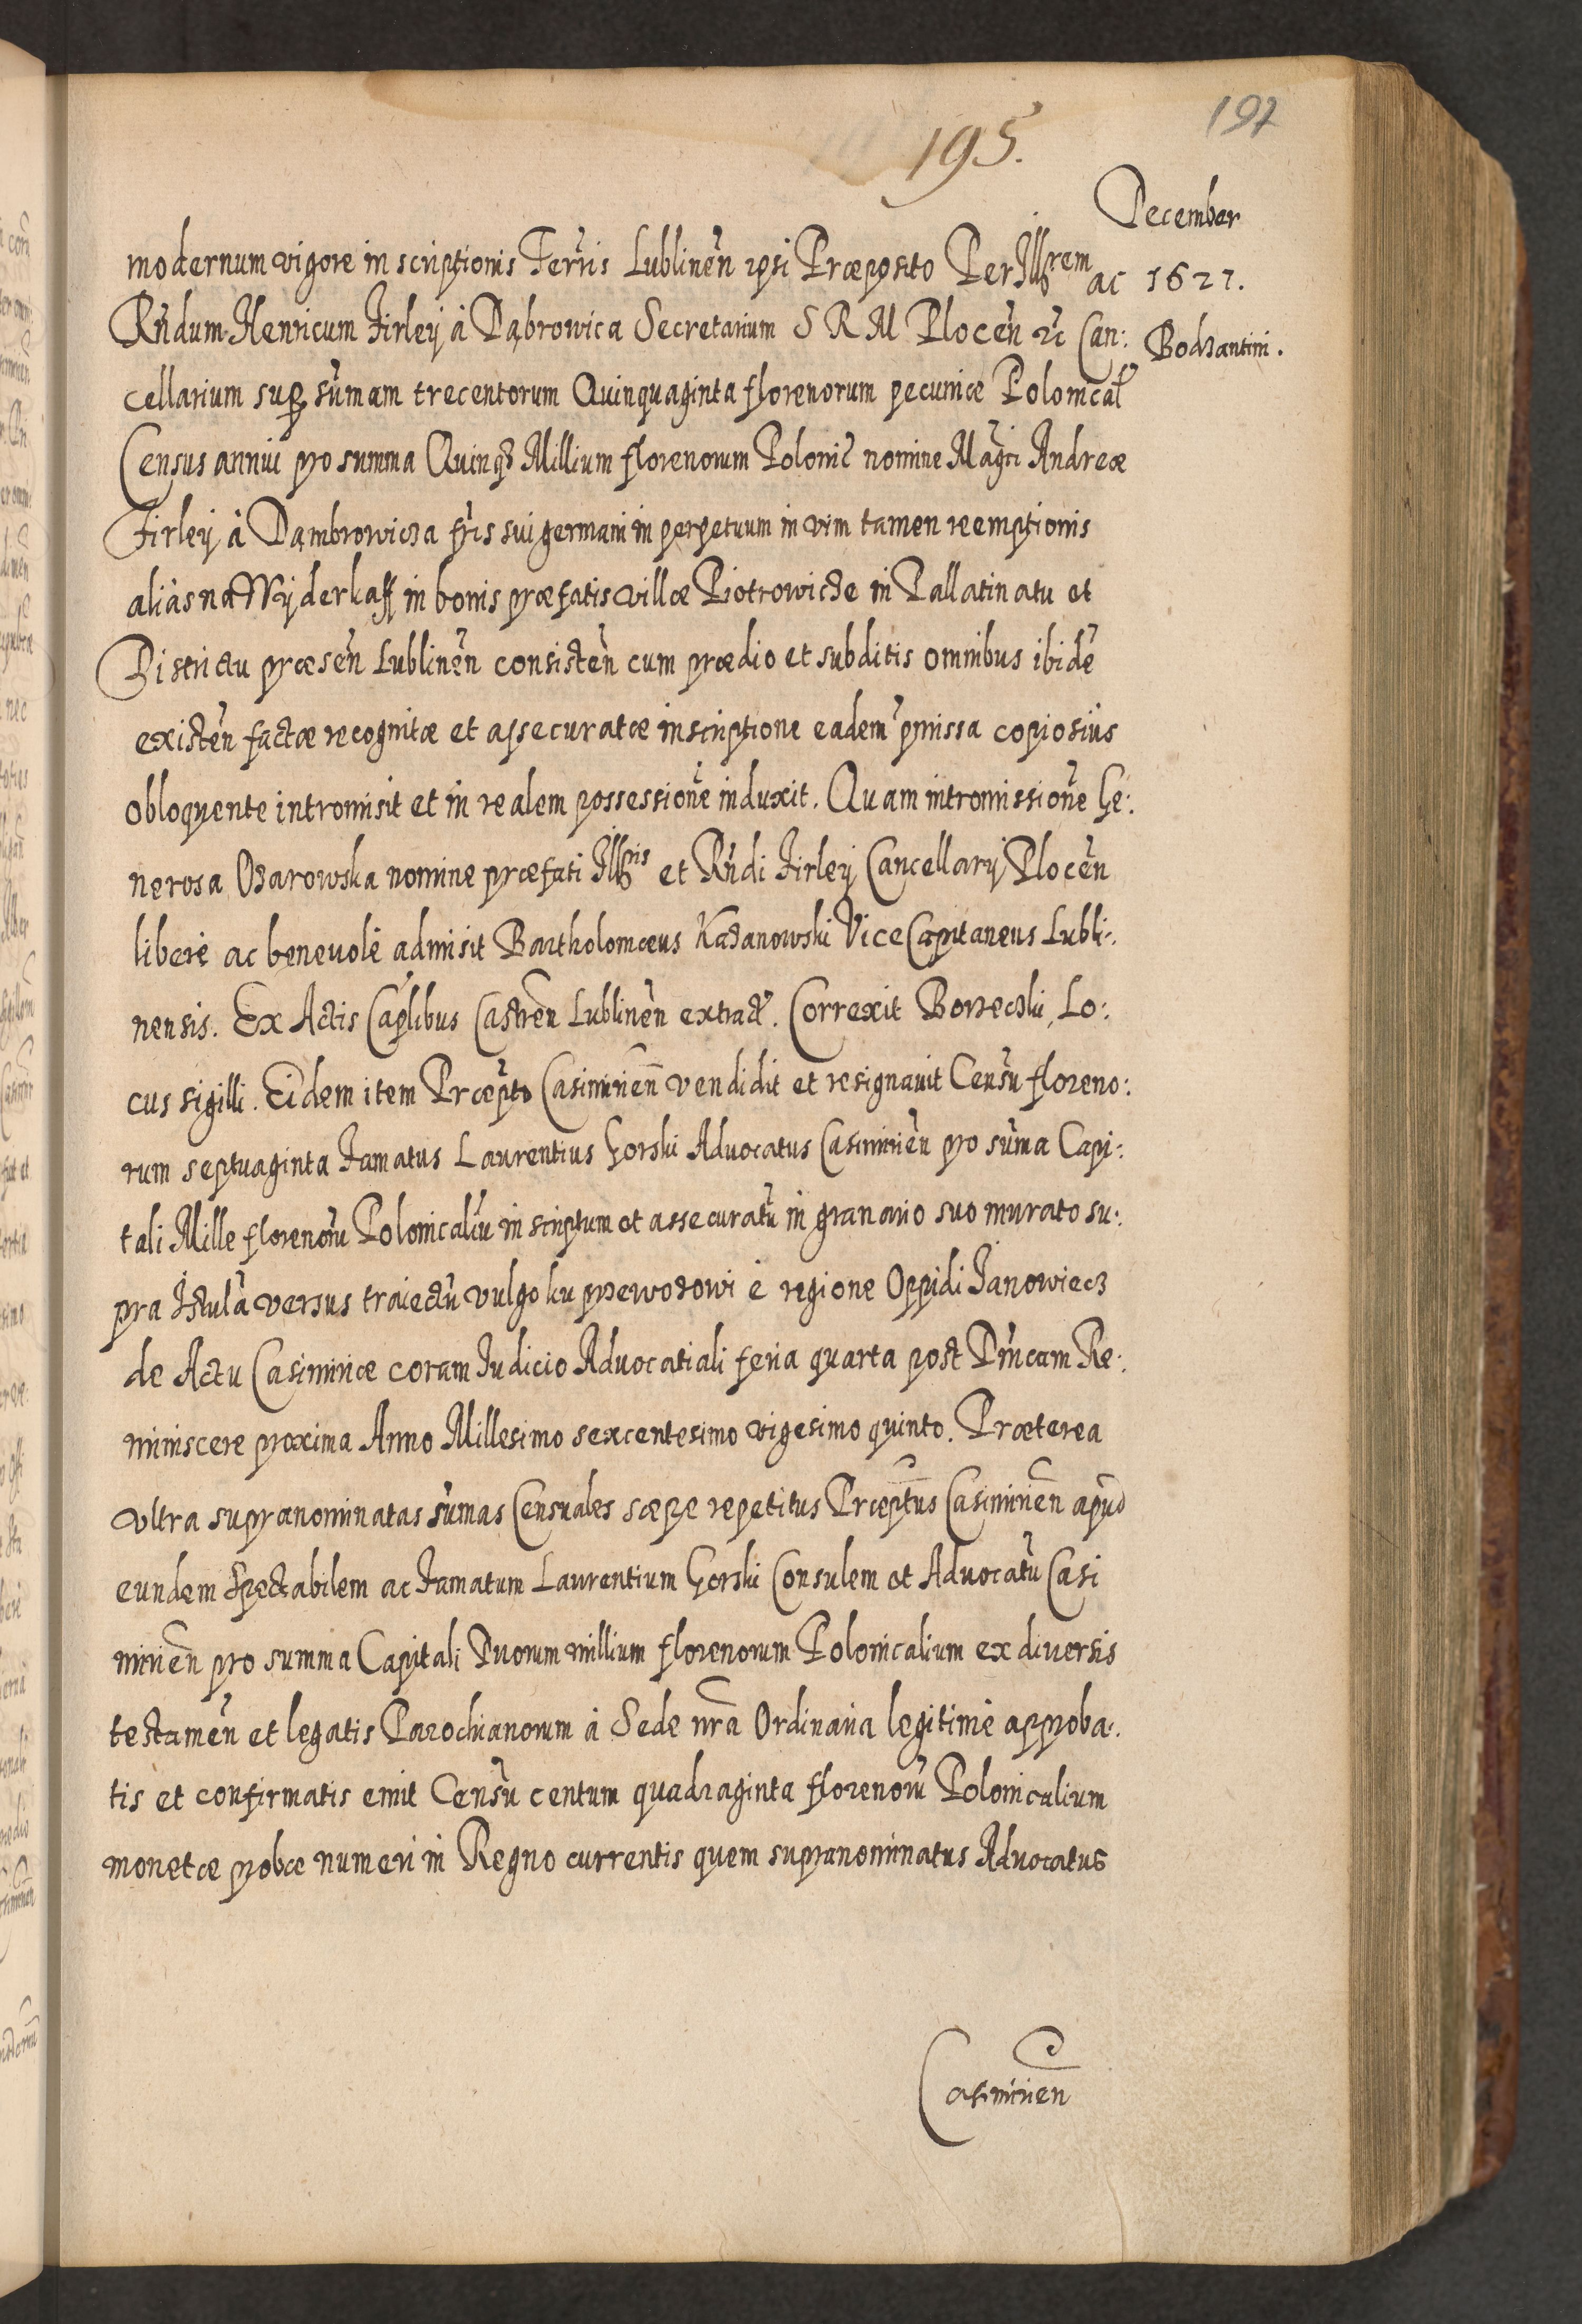 197
195.
December
1627.
Bodzantini.
modernum vigore inscriptionis Terris Lublinen ipsi Præposito Per Illrem ac
Rndum Henricum Firley à Dąbrowica Secretarium S R M Plocen Can:
cellarium sup sumam trecentorum Quinquaginta florenorum pecuniæ Polonical
Census annui pro summa Quinq Millium florenorum Polonic nomine Magci Andreæ
Firley à Dąmbrowicza fris sui germani in perpetuum in vim tamen reemptionis
aliàs na Wyderkaff in bonis præfatis villæ Piotrowicze in Pallatinatu et
Districtu præsen Lublinen consisten cum prædio et subditis omnibus ibide
existen factæ recognitæ et assecuratæ inscriptione eadem pmissa copiosius
obloquente intromisit et in realem possessione induxit. Quam intromissione Ge:
nerosa Ozarowska nomine præfati Illris et Rndi Firley Cancellarij Plocen
liberè ac benevolè admisit Bartholomæus Kazanowski ViceCapitaneus Lubli:
nensis. Ex Actis Caplibus Castren Lublinen extract. Correxit Borzecki, Lo:
cus sigilli. Eidem item Præpto Casimirien vendidit et resignavit Censu floreno:
rum septuaginta Famatus Laurentius Gorski Advocatus Casimirien pro suma Capi:
tali Mille florenoru Polonicaliu inscriptum et assecuratu in granario suo murato su:
pra Istulà versus traiectu vulgo ku przewozowi è regione Oppidi Janowiecz
de Actu Casimiriæ coram Judicio Advocatiali feria quarta post Dnicam Re:
miniscere proxima Anno Millesimo sexcentesimo vigesimo quinto. Præterea
ultra supranominatas sumas Censuales sæpe repetitus Præptus Casimirien apud
eundem spectabilem ac Famatum Laurentium Gorski Consulem et Advocatu Casi
mirien pro summa Capitali Duorum millium florenorum Polonicalium ex diversis
testamen et legatis Parochianorum à Sede nra Ordinaria legitime approba:
tis et confirmatis emit Censu centum quadraginta florenoru Polonicalium
monetæ probæ numeri in Regno currentis quem supranominatus Advocatus
Casimirien